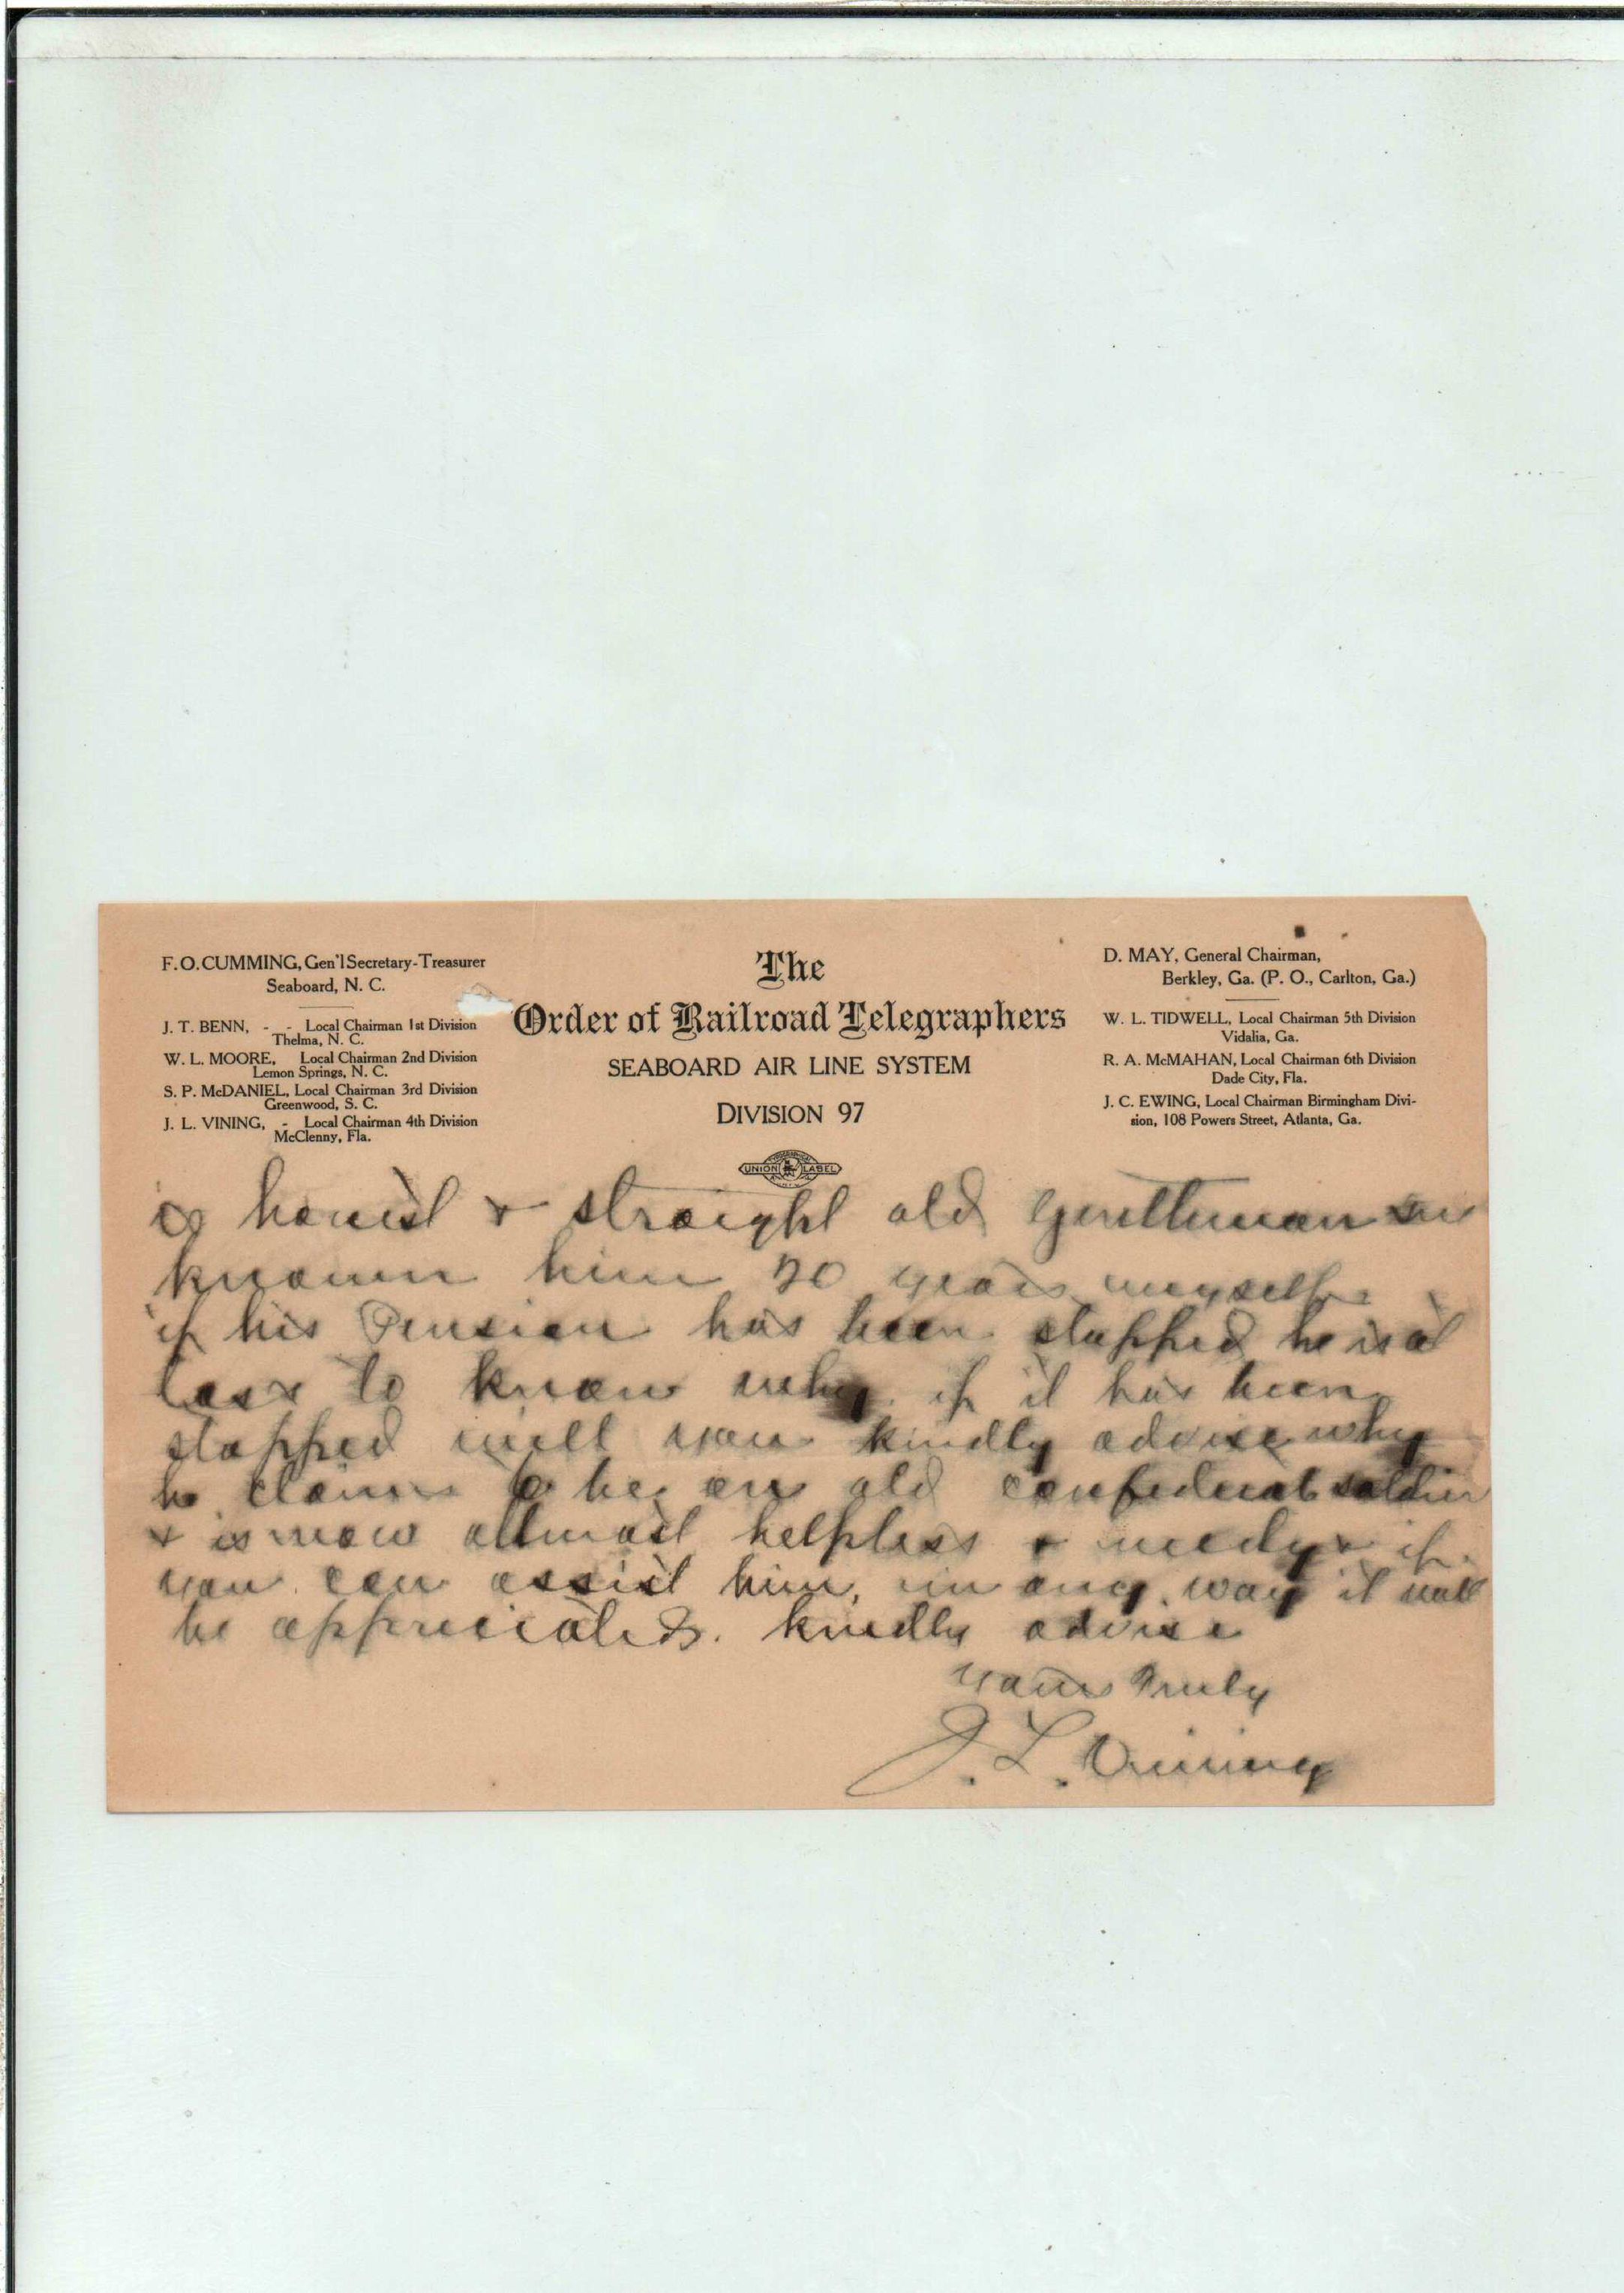 F.O. CUMMING, Gen'l Secretary-Treasurer
Seaboard, N. C.
J. T. BENN, - - Local Chairman 1st Division
Thelma, N. C.
W. L. MOORE, Local Chairman 2nd Division
Lemon Springs, N. C.
S. P. McDANIEL, Local Chairman 3rd Division
Greenwood, S. C.
J. L. VINING, - Local Chairman 4th Division
McClenny, Fla.
The
Order of Railroad Telegraphers
SEABOARD AIR LINE SYSTEM
DIVISION 97
UNION LABEL
D. MAY, General Chairman,
Berkley, Ga. (P. O., Carlton, Ga.)
W. L. TIDWELL, Local Chairman 5th Division
Vidalia, Ga.
R. A. McMAHAN, Local Chairman 6th Division
Dade City, Fla.
J. C. EWING, Local Chairman Birmingham Divi-
sion, 108 Powers Street, Atlanta, Ga.
is honest & straight old gentleman
known him 20 years myself
if his Pension has been stopped he is at
loss to know why. if it has been
stopped will you kindly advise why
he claims to be an old confederat soldier
& is now allmost helpless & needy & if
you can assist him, in any way it will
be appreciated. kindly advise
Yours Truly
J. L. Vining